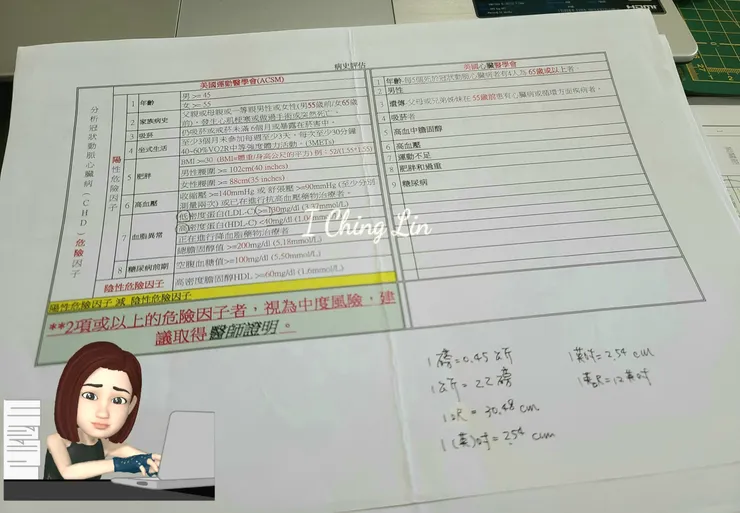 病史評估
美國運動醫學會(ACSM)
分析冠狀動脈心臟病(CHD)危險因子
陽性危險因子
1 年齡
男 >= 45
女 >= 55
2 家族病史
父親或母親或一等親男性或女性(男55歲前/女65歲前)，發生心肌梗塞或做過手術或突然死亡。
3 吸菸
仍吸菸或戒菸未滿6個月或暴露在菸害中。
4 坐式生活
至少3個月未參加每週至少3天，每次至少30分鐘
40~60%VO2R中等強度體力活動。(3METs)
5 肥胖
BMI >=30 (BMI=體重/身高公尺的平方) 例：52/(1.55*1.55)
男性腰圍 >= 102cm(40 inches)
女性腰圍 >= 88cm(35 inches)
6 高血壓
收縮壓 >=140mmHg 或 舒張壓 >=90mmHg (至少分別測量兩次) 或已在進行抗高血壓藥物治療者。
7 血脂異常
低密度蛋白(LDL-C)>=130mg/dl (3.37mmol/L)
高密度蛋白(HDL-C) <40mg/dl
正在進行降血脂藥物治療者
總膽固醇值 >=200mg/dl (5.18mmol/L)
8 糖尿病前期
空腹血糖值>=100mg/dl (5.50mmol/L)
陰性危險因子
高密度膽固醇HDL >=60mg/dl (1.6mmol/L)
陽性危險因子 減 陰性危險因子
**2項或以上的危險因子者，視為中度風險，建議取得醫師證明。
美國心臟醫學會
1 年齡-每5個死於冠狀動脈心臟病者有4人為65歲或以上者。
2 男性
3 遺傳-父母或兄弟姊妹在55歲前患有心臟病或循環方面疾病者。
4 吸菸者
5 高血中膽固醇
6 高血壓
7 運動不足
8 肥胖和過重
9 糖尿病
I Ching Lin
1磅=0.45公斤
1公斤=2.2磅
1呎=30.48 cm
1(英)吋=2.54 cm
1英吋=2.54 cm
1英呎=12英吋